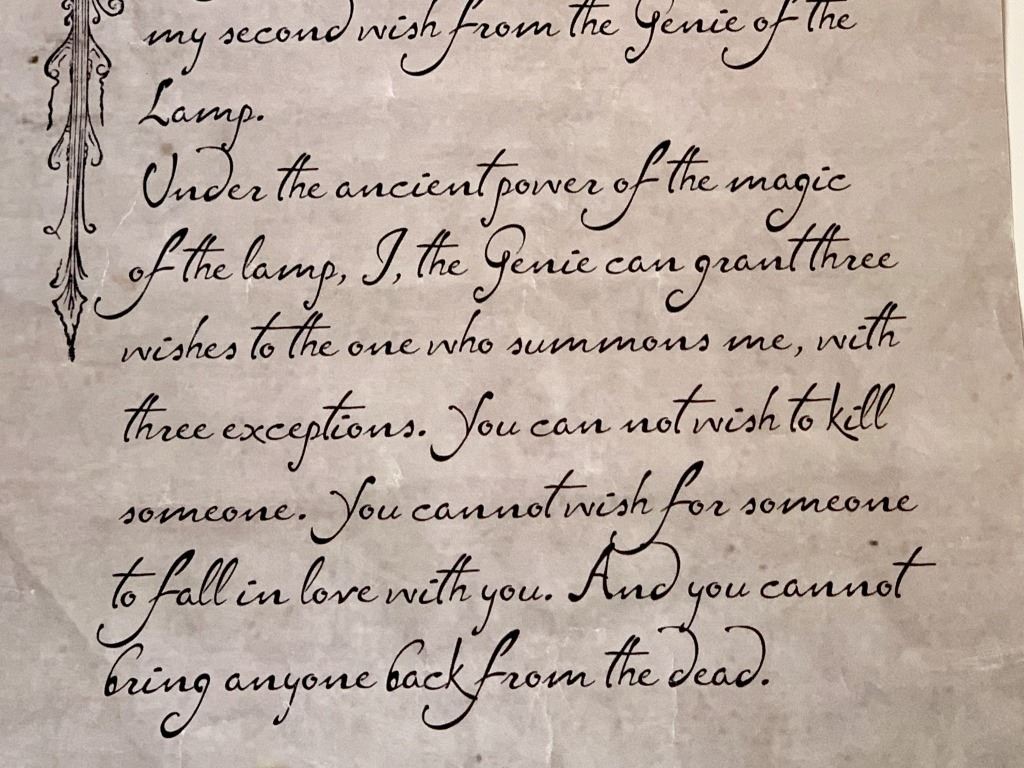 my second wish from the Genie of the
Lamp.
Under the ancient power of the magic
of the lamp, I, the Genie can grant three
wishes to the one who summons me, with
three exceptions. You can not wish to kill
someone. You cannot wish for someone
to fall in love with you. And you cannot
bring anyone back from the dead.